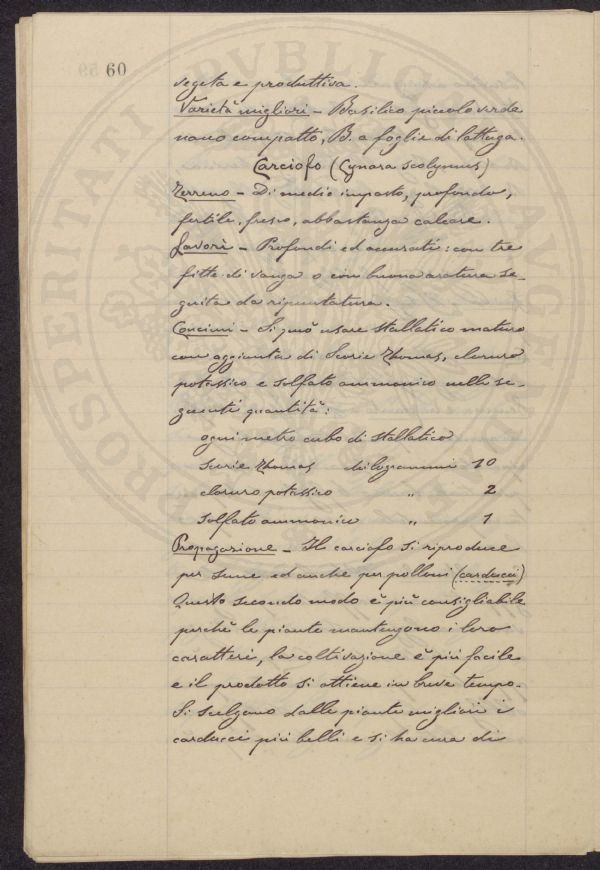 60
vegeta e produttiva.
Varietà migliori - Basilico piccolo verde
nano compatto, B. a foglie di lattuga.
Carciofo (Cynara scolymus)
Terreno - Di medio impasto, profondo,
fertile, fresco, abbastanza calcare.
Lavori - Profondi ed accurati: con tre
fitte di vanga o con buona aratura se-
guita da ripuntatura.
Concimi - Si può usare stallatico maturo
con aggiunta di Scorie Thomas, cloruro
potassico e solfato ammonico nelle se-
guenti quantità:
ogni metro cubo di stallatico
Scorie Thomas kilogrammi 10
cloruro potassico " 2
solfato ammonico " 1
Propagazione - Il carciofo si riproduce
per seme ed anche per polloni (carducci)
Questo secondo modo è più consigliabile
perchè le piante mantengono i loro
caratteri, la coltivazione è più facile
e il prodotto si ottiene in breve tempo.
Si scelgono dalle piante migliori i
carducci più belli e si ha cura di
PROSPERITATI PUBLICAE AUGENDAE